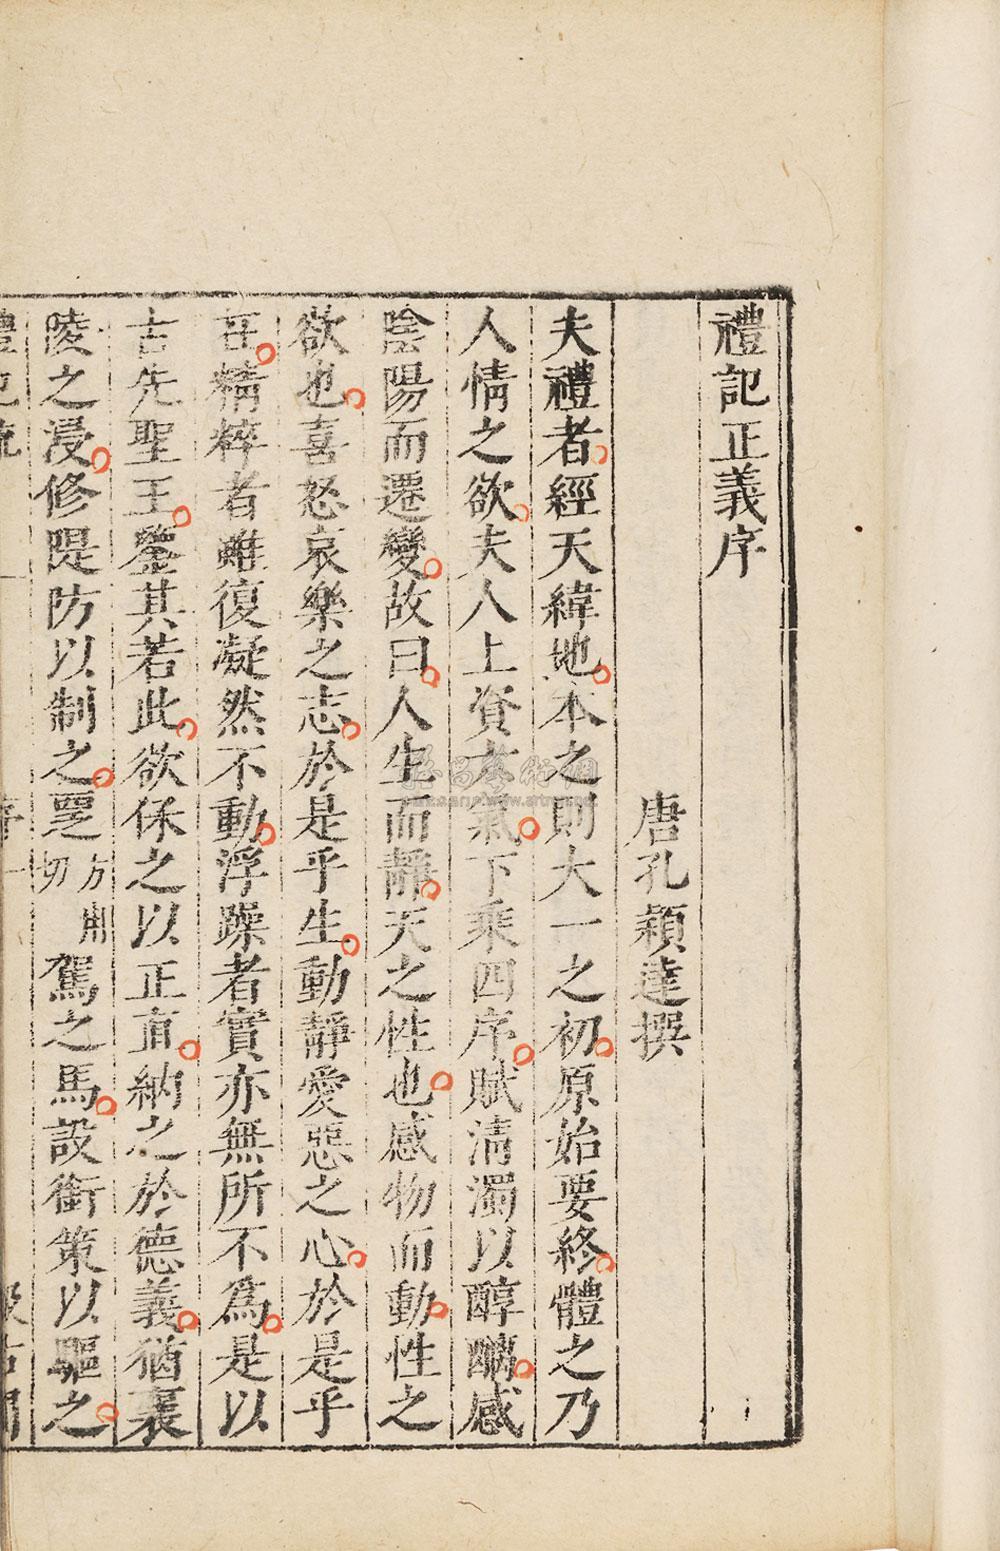 禮記正義序
唐孔穎達撰
夫禮者經天緯地本之則大一之初原始要終體之乃
人情之欲夫人上資六氣下乘四序賦清濁以醇醨感
陰陽而遷變故曰人生而靜天之性也感物而動性之
欲也喜怒哀樂之志於是乎生動靜愛惡之心於是乎
在精粹者雖復凝然不動浮躁者實亦無所不爲是以
古先聖王鑒其若此欲保之以正直納之於德義猶襄
陵之浸修隄防以制之覂方用切駕之馬設銜策以驅之
禮記疏 序 一 汲古閣